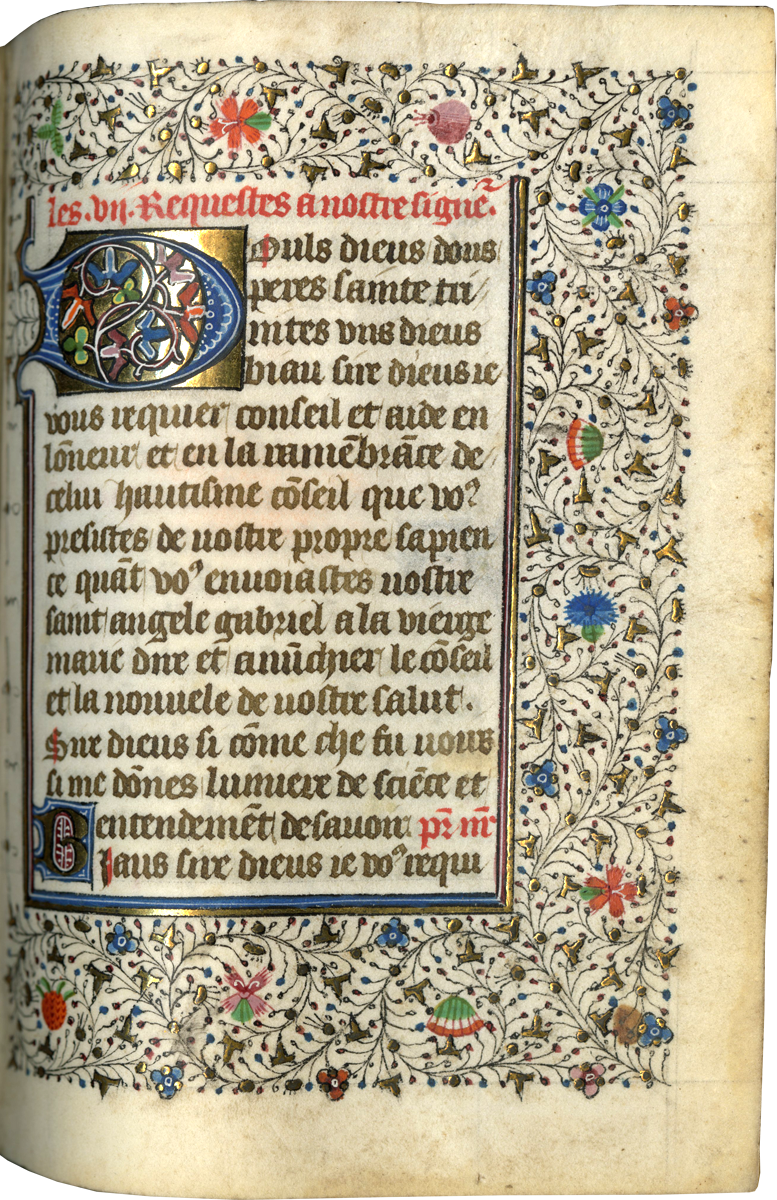 les .vii. Requestes a nostre signē.
Ouls dieus dous
peres sainte tri
nites vns dieus
biau sire dieus ie
vous requier conseil et aide en
lōneur et en la ramēbrāce de
celui hautisme cōseil que voꝰ
presistes de vostre propre sapien
ce quāt voꝰ enuoiastes vostre
saint angele gabriel a la vierge
marie dire et anūchier le cōseil
et la nouuele de nostre salut.
Sire dieus si cōme che fu uous
si me dōnes lumiere de sciēce et
entendemēt de sauoir. pr̄ nr̄
Biaus sire dieus ie voꝰ requi